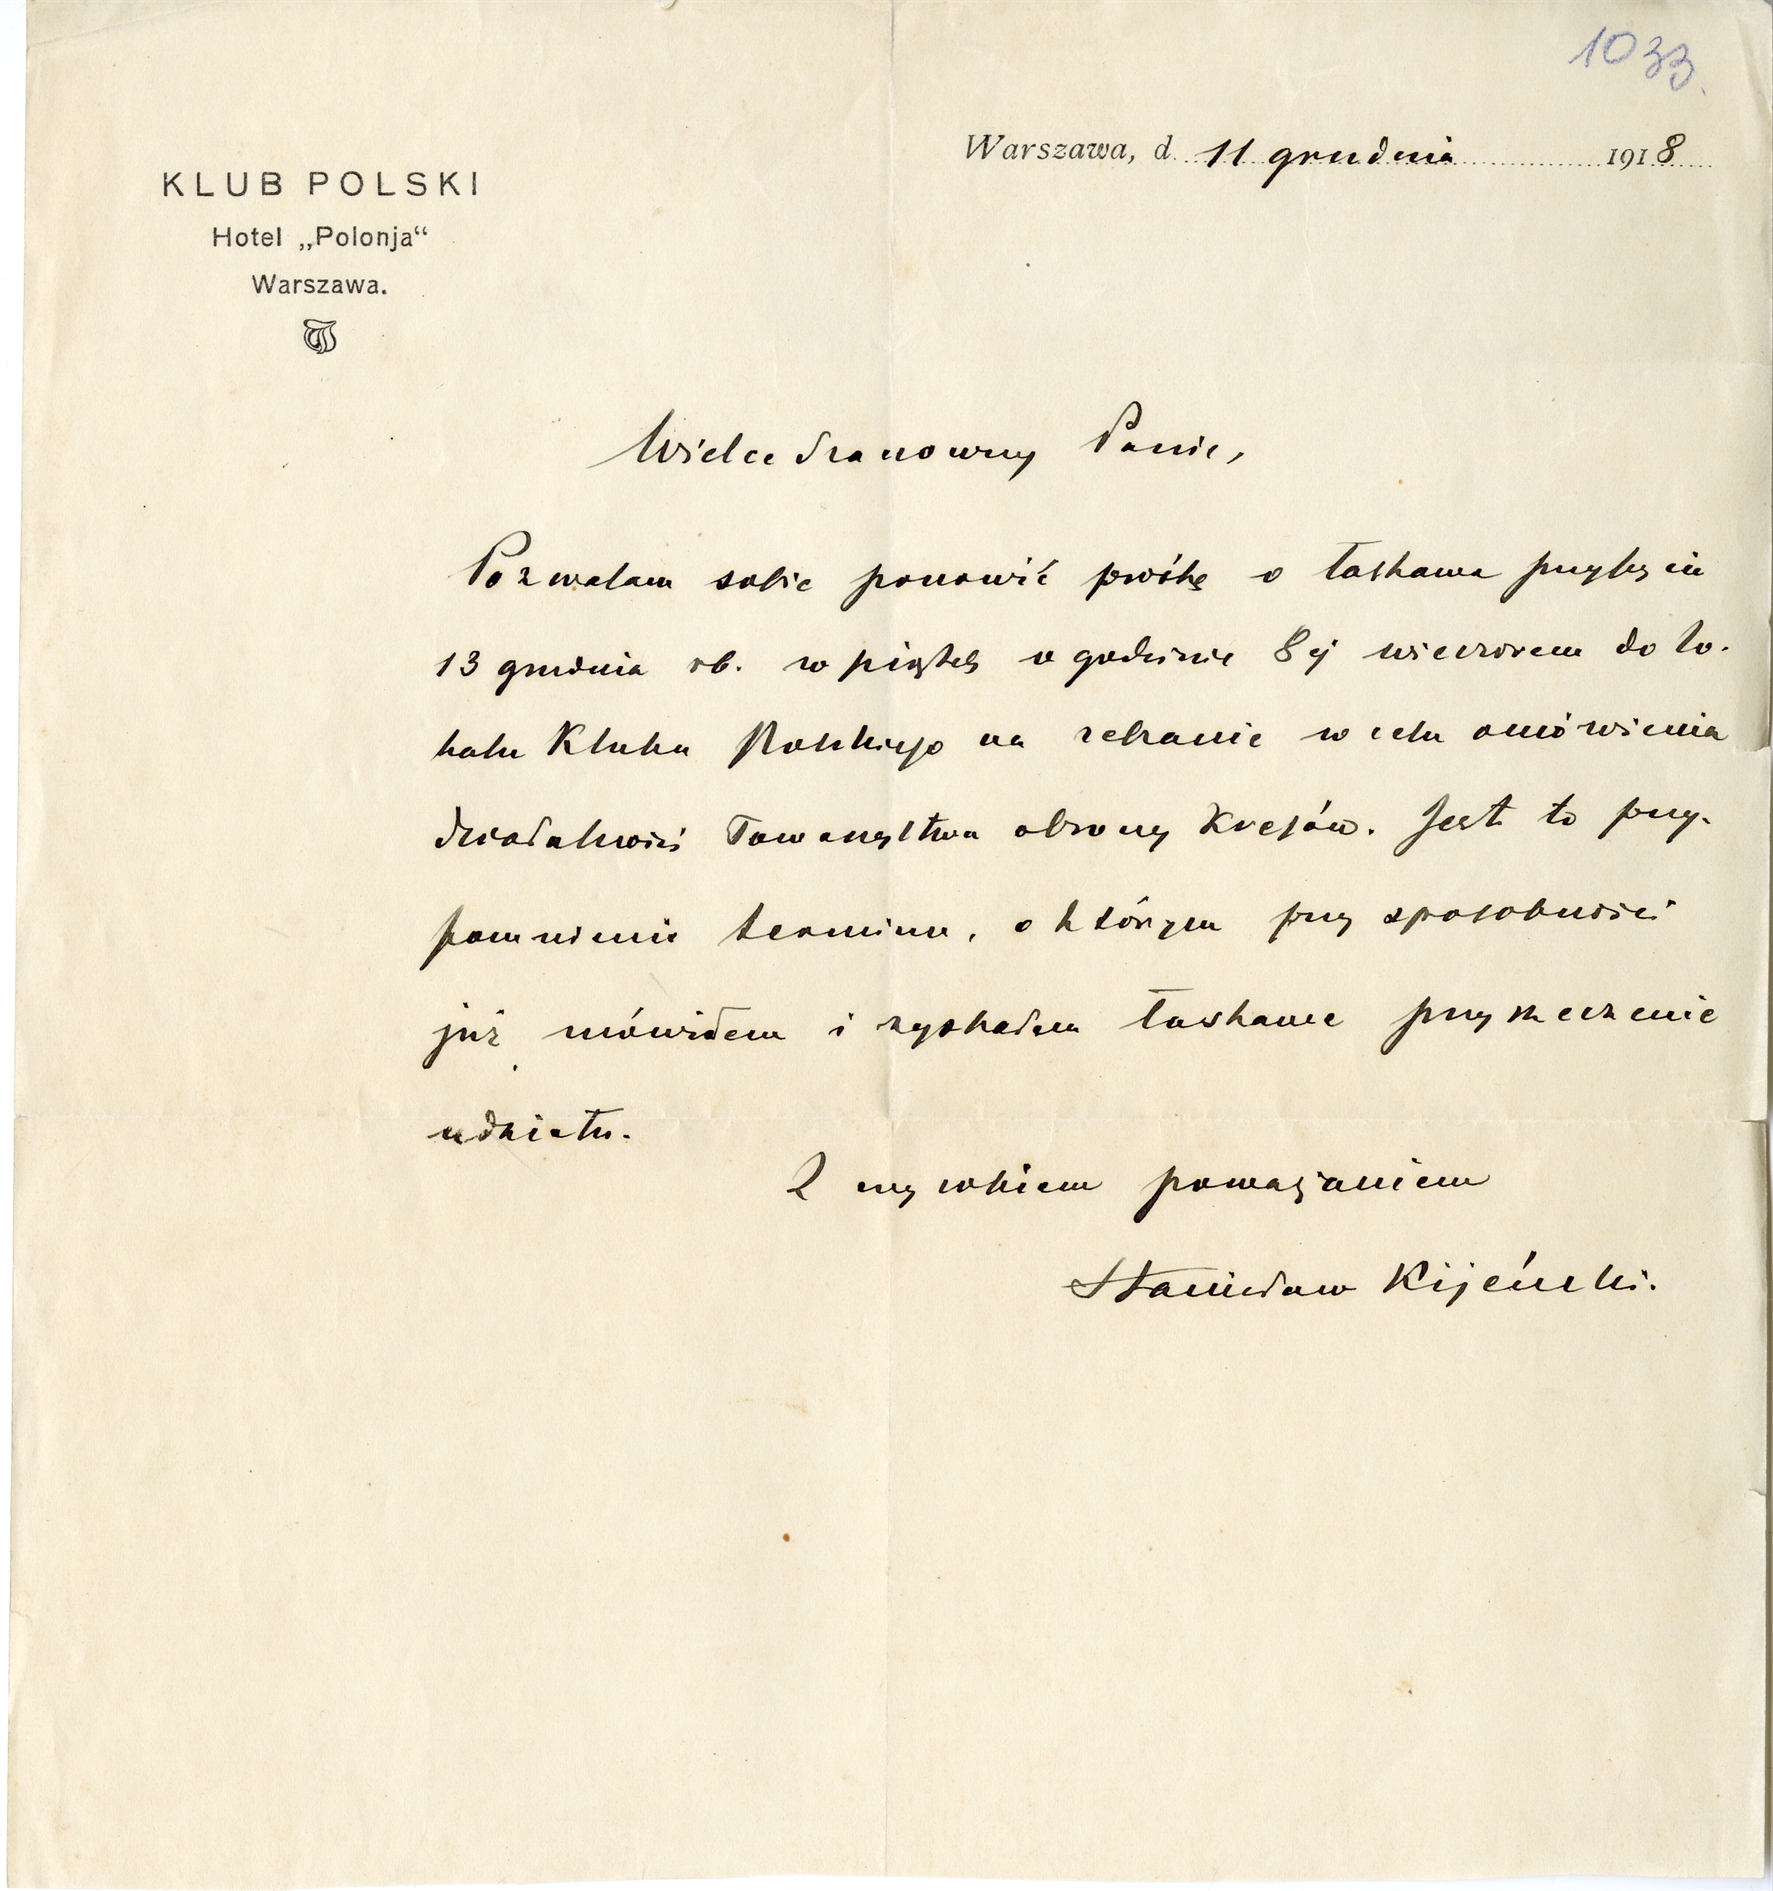 1033.
Warszawa, d. 11 grudnia 1918
KLUB POLSKI
Hotel „Polonja“
Warszawa.
Wielce Szanowny Panie,
Pozwalam sobie ponowić prośbę o łaskawe przybycie
13 grudnia rb. w piątek o godzinie 8ej wieczorem do lo-
kalu Klubu Polskiego na zebranie w celu omówienia
działalności Towarzystwa obrony Kresów. Jest to przy-
pomnienie terminu, o którym przy sposobności
już mówiłem i zyskałem łaskawe przyrzeczenie
udziału.
Z wysokiem poważaniem
Stanisław Kijeński.